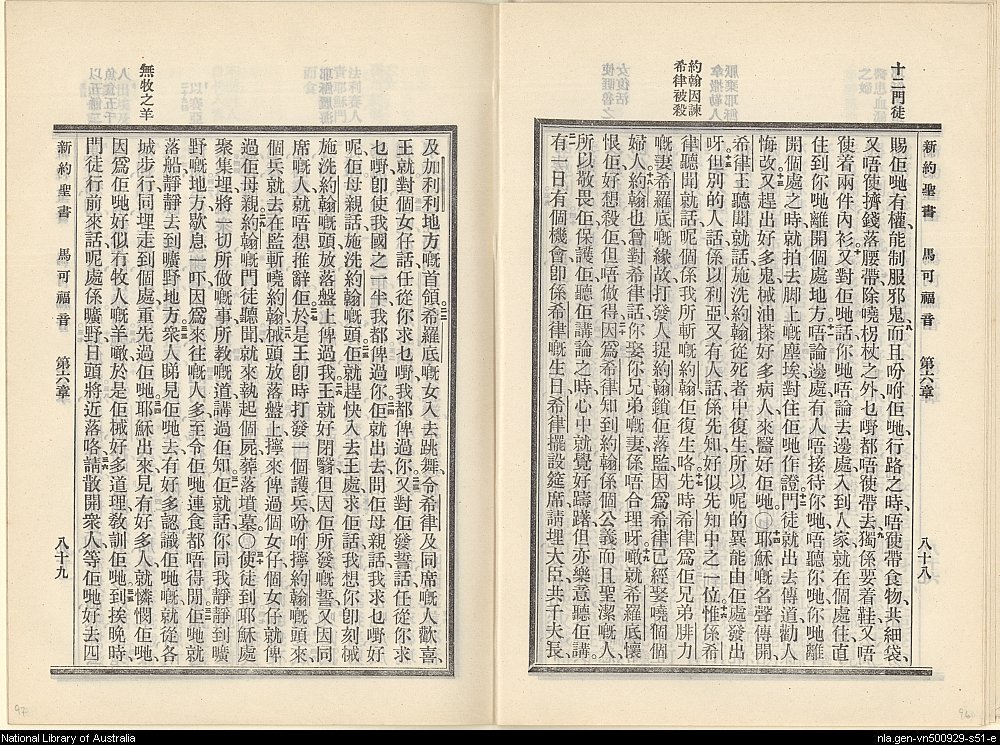 十二門徒
約翰因諫
希律被殺
新約聖書 馬可福音 第六章 八十八
賜佢哋有權能制服邪鬼而且吩咐佢哋行路之時唔使帶食物共細袋
又唔使擠錢落腰帶除嘵枴杖之外乜嘢都唔使帶去獨係要着鞋又唔
使着兩件內衫又對佢哋話你哋唔論去邊處入到人家就在個處住直
住到你哋離開個處地方唔論邊處有人唔接待你哋唔聽你哋你哋離
開個處之時就拍去脚上嘅塵埃對住佢哋作證門徒就出去傳道勸人
悔改又趕出好多鬼械油搽好多病人來醫好佢哋〇耶穌嘅名聲傳開
希律王聽聞就話施洗約翰從死者中復生所以呢的異能由佢處發出
呀但別的人話係以利亞又有人話係先知好似先知中之一位惟係希
律聽聞就話呢個係我所斬嘅約翰佢復生咯先時希律爲佢兄弟腓力
嘅妻希羅底嘅緣故打發人捉約翰鎖佢落監因爲希律已經娶嘵個個
婦人約翰也曾對希律話你娶你兄弟嘅妻係唔合理呀嗽就希羅底懷
恨佢好想殺佢但唔做得因爲希律知到約翰係個公義而且聖潔嘅人
所以敬畏佢保護佢聽佢講論之時心中就覺好躊躇但亦樂意聽佢講
有一日有個機會卽係希律嘅生日希律擺設筵席請埋大臣共千夫長
無牧之羊
及加利利地方嘅首領希羅底嘅女入去跳舞令希律及同席嘅人歡喜
王就對個女仔話任從你求乜嘢我都俾過你又對佢發誓話任從你求
乜嘢卽使我國之一半我都俾過你佢就出去問佢母親話我求乜嘢好
呢佢母親話施洗約翰嘅頭佢就趕快入去王處求佢話我想你卽刻械
施洗約翰嘅頭放落盤上俾過我王就好閉翳但因佢所發嘅誓又因同
席嘅人就唔想推辭佢於是王卽時打發一個護兵吩咐擰約翰嘅頭來
個兵就去在監斬嘵約翰械頭放落盤上擰來俾過個女仔個女仔就俾
過佢母親約翰嘅門徒聽聞就來執起個屍葬落墳墓〇使徒到耶穌處
聚集埋將一切所做嘅事所教嘅道講過佢知佢就話你同我靜靜到曠
野嘅地方歇息一吓因爲來往嘅人多至令佢哋連食都唔得閒佢哋就
落船靜靜去到曠野地方衆人睇見佢哋去有好多認識佢哋嘅就從各
城步行同埋走到個處重先過佢哋耶穌出來見有好多人就憐憫佢哋
因爲佢哋好似冇牧人嘅羊噉於是佢械好多道理教訓佢哋到挨晚時
門徒行前來話呢處係曠野日頭將近落咯請散開衆人等佢哋好去四
新約聖書 馬可福音 第六章 八十九
97
96
National Library of Australia
nla.gen-vn500929-s51-e